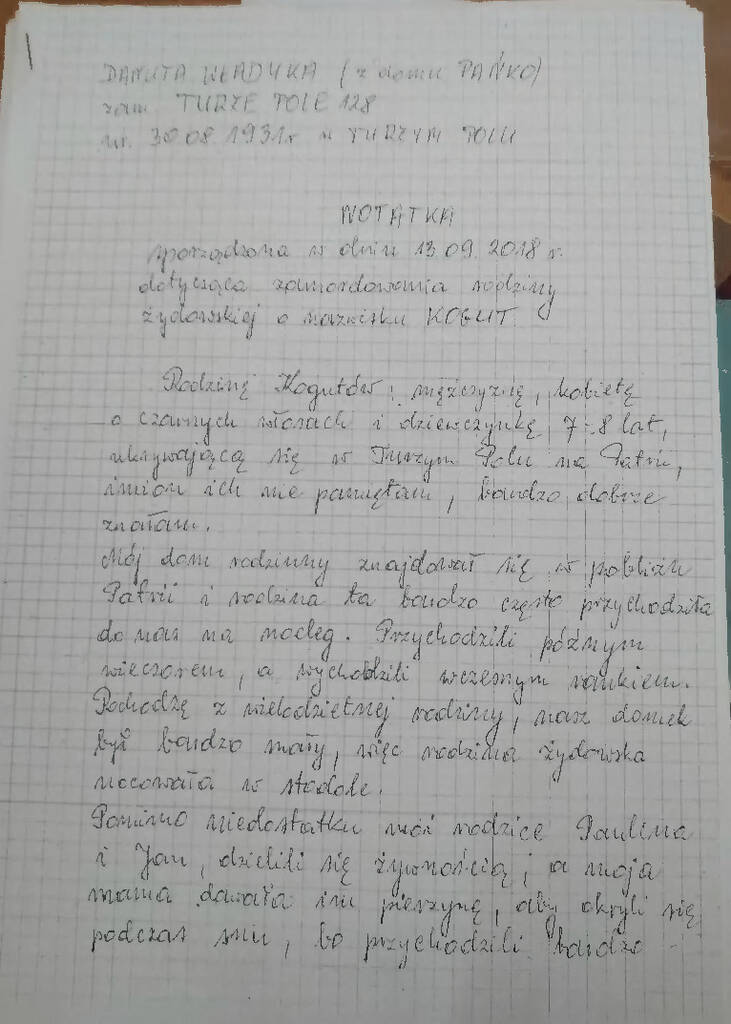 1
DANUTA WŁADYKA (z domu PAŃKO)
zam. TURZE POLE 128
ur. 30.08.1931r w TURZYM POLU
NOTATKA
sporządzona w dniu 13.09.2018 r.
dotycząca zamordowania rodziny
żydowskiej o nazwisku KOGUT
Rodzinę Kogutów: mężczyznę, kobietę
o czarnych włosach i dziewczynkę 7-8 lat,
ukrywającą się w Turzym Polu na Patrii,
imion ich nie pamiętam, bardzo dobrze
znałam.
Mój dom rodzinny znajdował się w pobliżu
Patrii i rodzina ta bardzo często przychodziła
do nas na nocleg. Przychodzili późnym
wieczorem, a wychodzili wczesnym rankiem.
Pochodzę z wielodzietnej rodziny, nasz domek
był bardzo mały, więc rodzina żydowska
nocowała w stodole.
Pomimo niedostatku moi rodzice Paulina
i Jan, dzielili się żywnością, a moja
mama dawała im pierzynę, aby okryli się
podczas snu, bo przychodzili bardzo